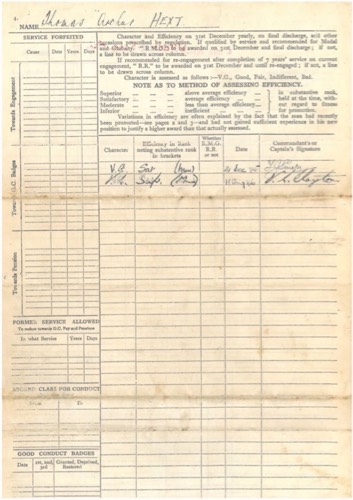 NAME Thomas HEXT.
SERVICE FORFEITED
Cause
Days
Years
Days
Character and Efficiency on 31st December yearly, on final discharge, and other
occasions prescribed by regulation. If qualified by service and recommended for Medal
and Gratuity, "R.M.G." to be awarded on 31st December and final discharge; if not,
a line to be drawn across column.
If recommended for re-engagement after completion of 7 years' service on current
engagement, "R.R." to be awarded on 31st December and until re-engaged; if not, a line
to be drawn across column.
Character is assessed as follows:—V.G., Good, Fair, Indifferent, Bad.
NOTE AS TO METHOD OF ASSESSING EFFICIENCY.
Superior — — above average efficiency — in substantive rank,
Satisfactory — — average efficiency — held at the time, with-
Moderate — — less than average efficiency— out regard to fitness
Inferior — — inefficient — for promotion.
Variations in efficiency are often explained by the fact that the men had recently
been promoted—see pages 2 and 3—and had not gained sufficient experience in his new
position to justify a higher award than that actually assessed.
Character
Efficiency in Rank
noting substantive rank
in brackets
Whether
R.M.G.
R.R.
or not
Date
Commandant's or
Captain's Signature
V.G. Sat (Mne) 31 Dec 45
V.G. (Mne) Aug 46 Clayton
Towards Engagement
Towards G.C. Badges
Towards Pension
FORMER SERVICE ALLOWED
To reckon towards G.C. Pay and Pensions
In other Service
Years
Days
SECOND CLASS FOR CONDUCT
From
To
GOOD CONDUCT BADGES
Date
1st, 2nd,
3rd
Granted, Deprived,
Restored